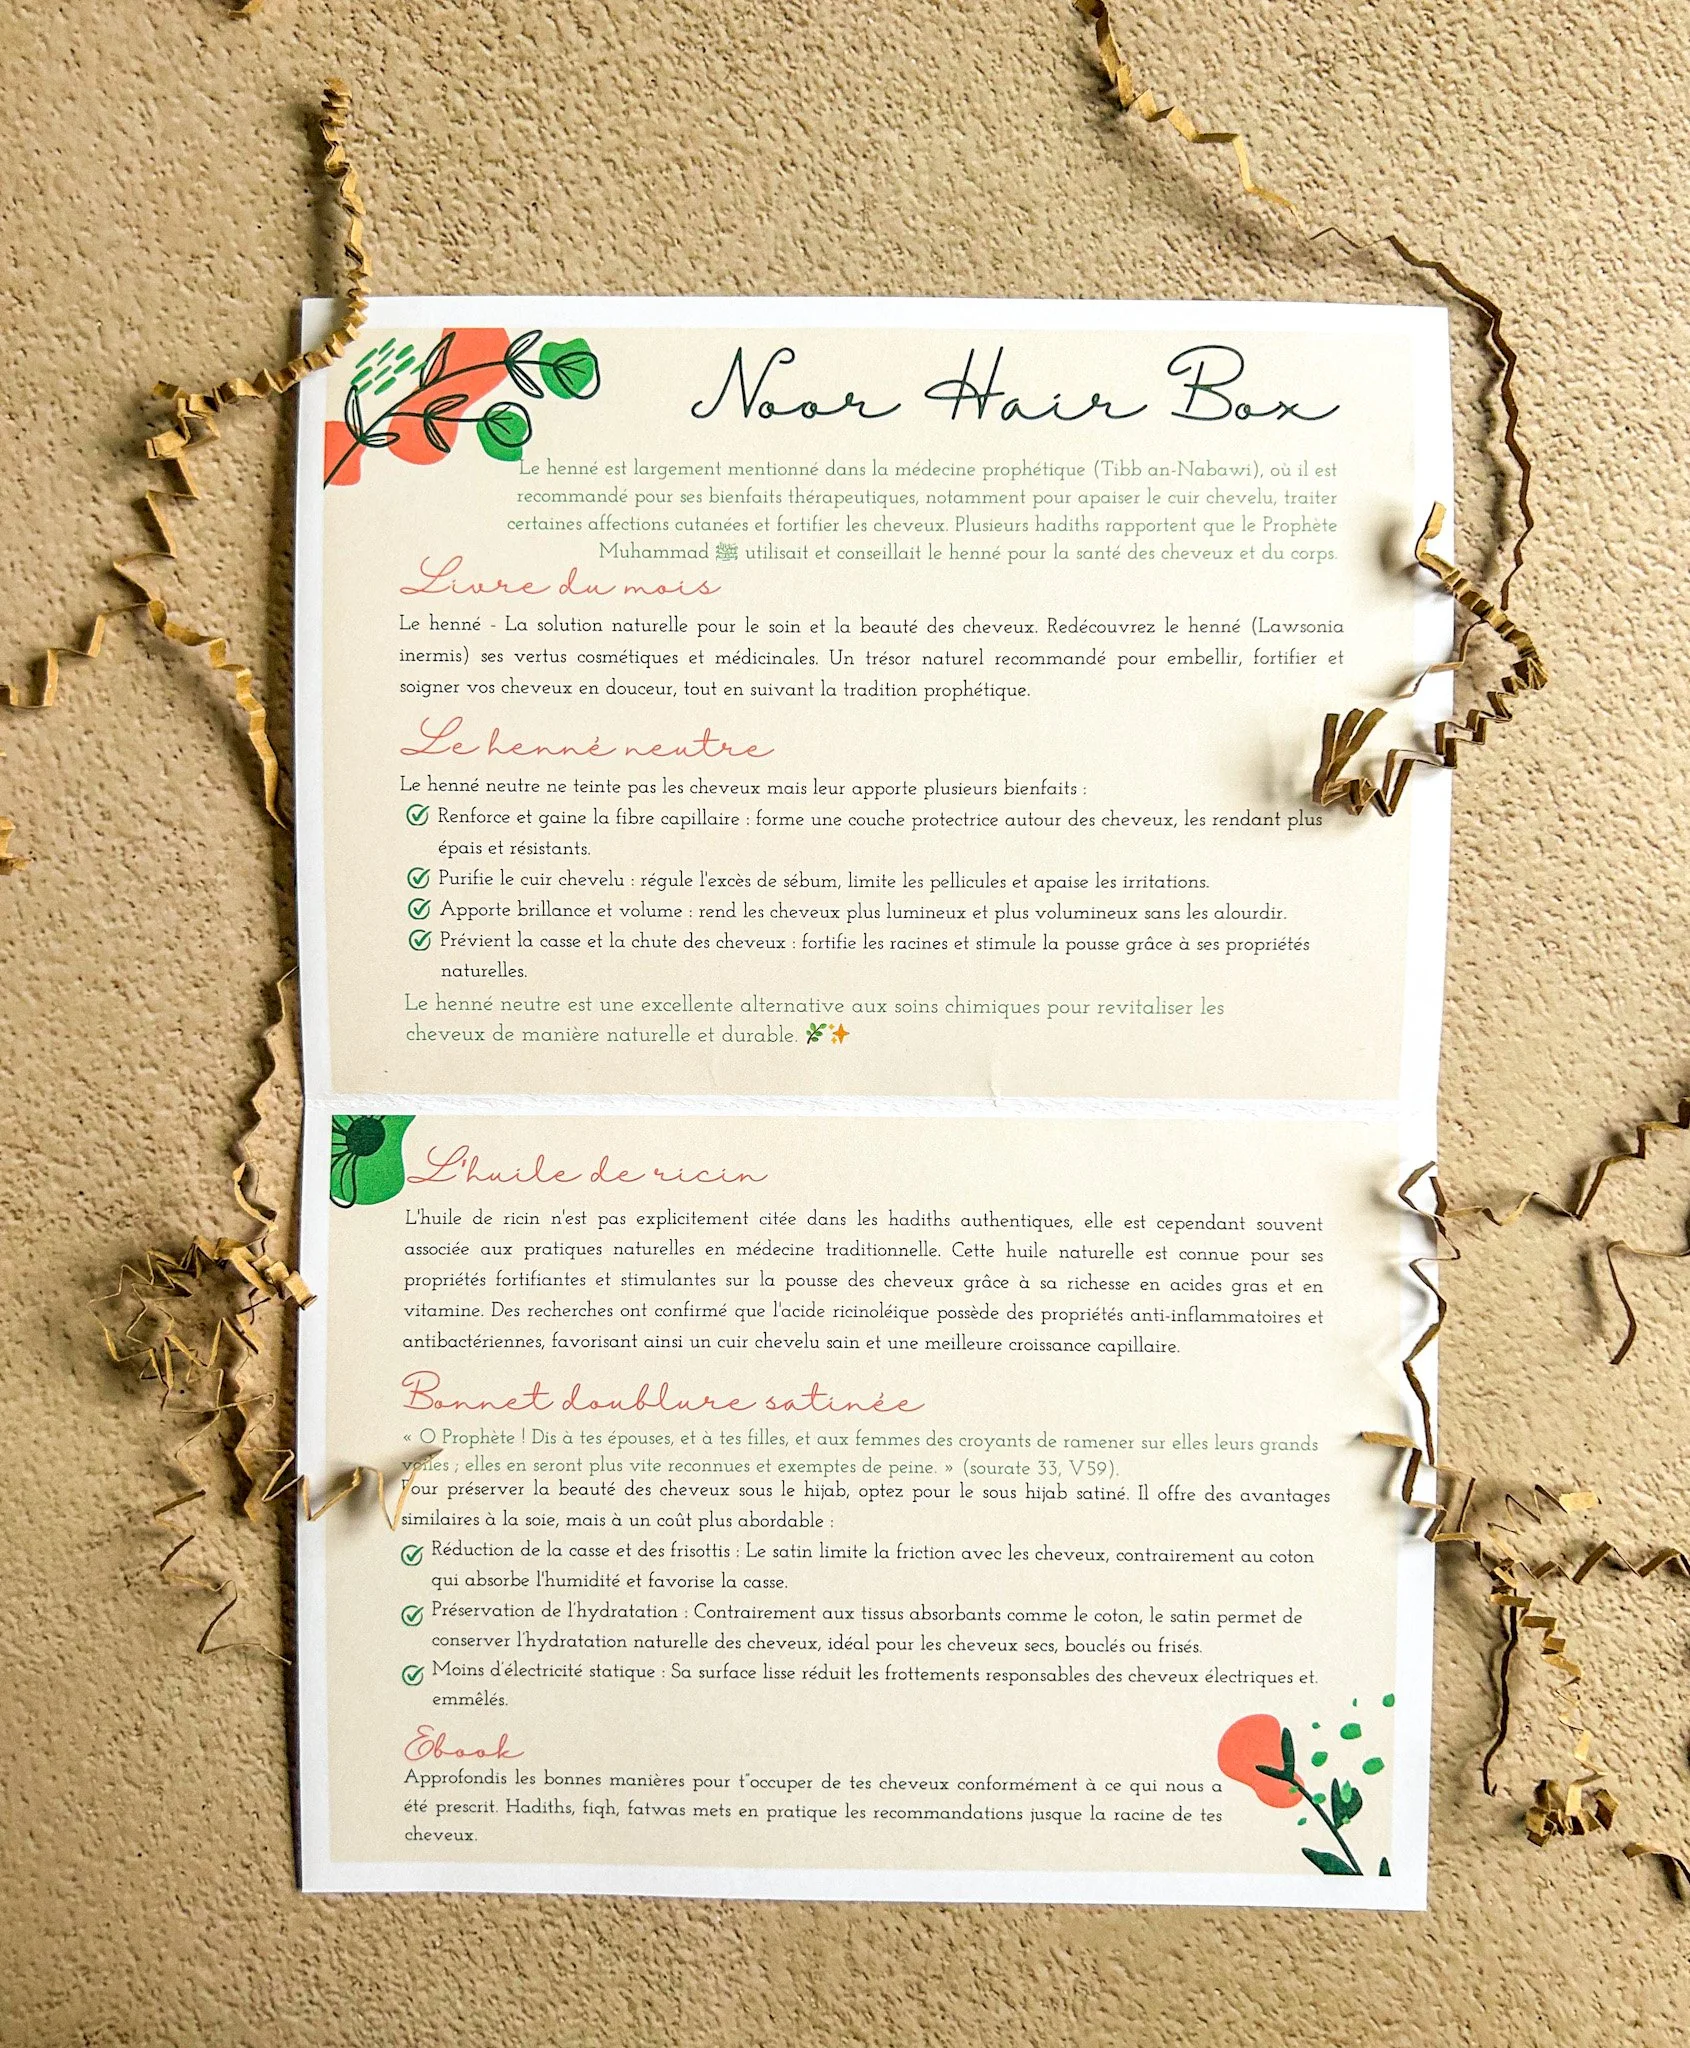 Noor Hair Box
Le henné est largement mentionné dans la médecine prophétique (Tibb an-Nabawi), où il est
recommandé pour ses bienfaits thérapeutiques, notamment pour apaiser le cuir chevelu, traiter
certaines affections cutanées et fortifier les cheveux. Plusieurs hadiths rapportent que le Prophète
Muhammad ﷺ utilisait et conseillait le henné pour la santé des cheveux et du corps.
Livre du mois
Le henné - La solution naturelle pour le soin et la beauté des cheveux. Redécouvrez le henné (Lawsonia
inermis) ses vertus cosmétiques et médicinales. Un trésor naturel recommandé pour embellir, fortifier et
soigner vos cheveux en douceur, tout en suivant la tradition prophétique.
Le henné neutre
Le henné neutre ne teinte pas les cheveux mais leur apporte plusieurs bienfaits :
Renforce et gaine la fibre capillaire : forme une couche protectrice autour des cheveux, les rendant plus
épais et résistants.
Purifie le cuir chevelu : régule l'excès de sébum, limite les pellicules et apaise les irritations.
Apporte brillance et volume : rend les cheveux plus lumineux et plus volumineux sans les alourdir.
Prévient la casse et la chute des cheveux : fortifie les racines et stimule la pousse grâce à ses propriétés
naturelles.
Le henné neutre est une excellente alternative aux soins chimiques pour revitaliser les
cheveux de manière naturelle et durable. 🌿✨
L'huile de ricin
L'huile de ricin n'est pas explicitement citée dans les hadiths authentiques, elle est cependant souvent
associée aux pratiques naturelles en médecine traditionnelle. Cette huile naturelle est connue pour ses
propriétés fortifiantes et stimulantes sur la pousse des cheveux grâce à sa richesse en acides gras et en
vitamine. Des recherches ont confirmé que l'acide ricinoléique possède des propriétés anti-inflammatoires et
antibactériennes, favorisant ainsi un cuir chevelu sain et une meilleure croissance capillaire.
Bonnet doublure satinée
« O Prophète ! Dis à tes épouses, et à tes filles, et aux femmes des croyants de ramener sur elles leurs grands
voiles ; elles en seront plus vite reconnues et exemptes de peine. » (sourate 33, V59).
Pour préserver la beauté des cheveux sous le hijab, optez pour le sous hijab satiné. Il offre des avantages
similaires à la soie, mais à un coût plus abordable :
Réduction de la casse et des frisottis : Le satin limite la friction avec les cheveux, contrairement au coton
qui absorbe l'humidité et favorise la casse.
Préservation de l'hydratation : Contrairement aux tissus absorbants comme le coton, le satin permet de
conserver l'hydratation naturelle des cheveux, idéal pour les cheveux secs, bouclés ou frisés.
Moins d'électricité statique : Sa surface lisse réduit les frottements responsables des cheveux électriques et.
emmêlés.
Ebook
Approfondis les bonnes manières pour t"occuper de tes cheveux conformément à ce qui nous a
été prescrit. Hadiths, fiqh, fatwas mets en pratique les recommandations jusque la racine de tes
cheveux.